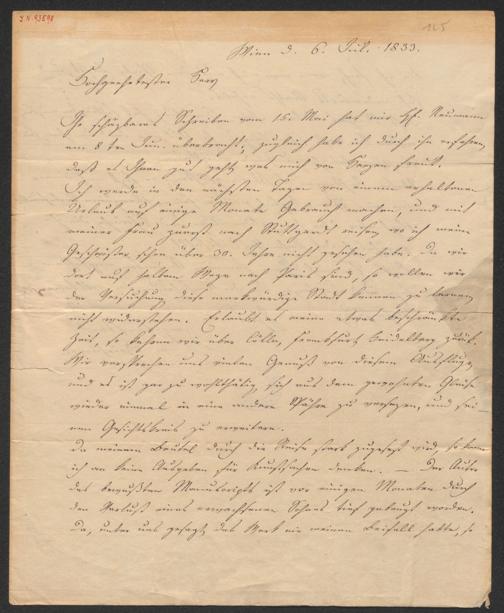 I.N. 93598
125
Wien d. 6. Jul. 1833.
Hochgeehrtester Herr
Ihr schäzbares Schreiben vom 15. Mai hat mir Hf. Neumann
am 8 ten Jun. überbracht; zugleich habe ich durch ihn erfahren,
daß es Ihnen gut geht, was mich von Herzen freut.
Ich werde in den nächsten Tagen von einem erhaltenen
Urlaub auf einige Monate Gebrauch machen, und mit
meiner Frau zuerst nach Stuttgardt reisen, wo ich meine
Geschwister schon über 30. Jahre nicht gesehen habe. Da wir
dort auf halbem Wege nach Paris sind, so wollen wir
der Versuchung diese merkwürdige Stadt kennen zu lernen
nicht widerstehen. Erlaubt es meine etwas beschränkte
Zeit, so kehren wir über Cölln, Frankfurt, Heidelberg zurück.
Wir versprechen uns vielen Genuß von diesem Ausfluge,
und es ist gar zu wohlthätig sich aus dem gewohnten Gleise
wieder einmal in eine andere Sphäre zu versezen, und sei-
nen Gesichtskreis zu erweitern.
Da meinem Beutel durch die Reise stark zugesezt wird, so kann
ich an keine Ausgaben für Kunstsachen denken. — Der Autor
des bewußten Manuscripts ist vor einigen Monaten durch
den Verlust eines erwachsenen Sohnes tief gebeugt worden.
Da, unter uns gesagt, das Werk nie meinen Beifall hatte, so